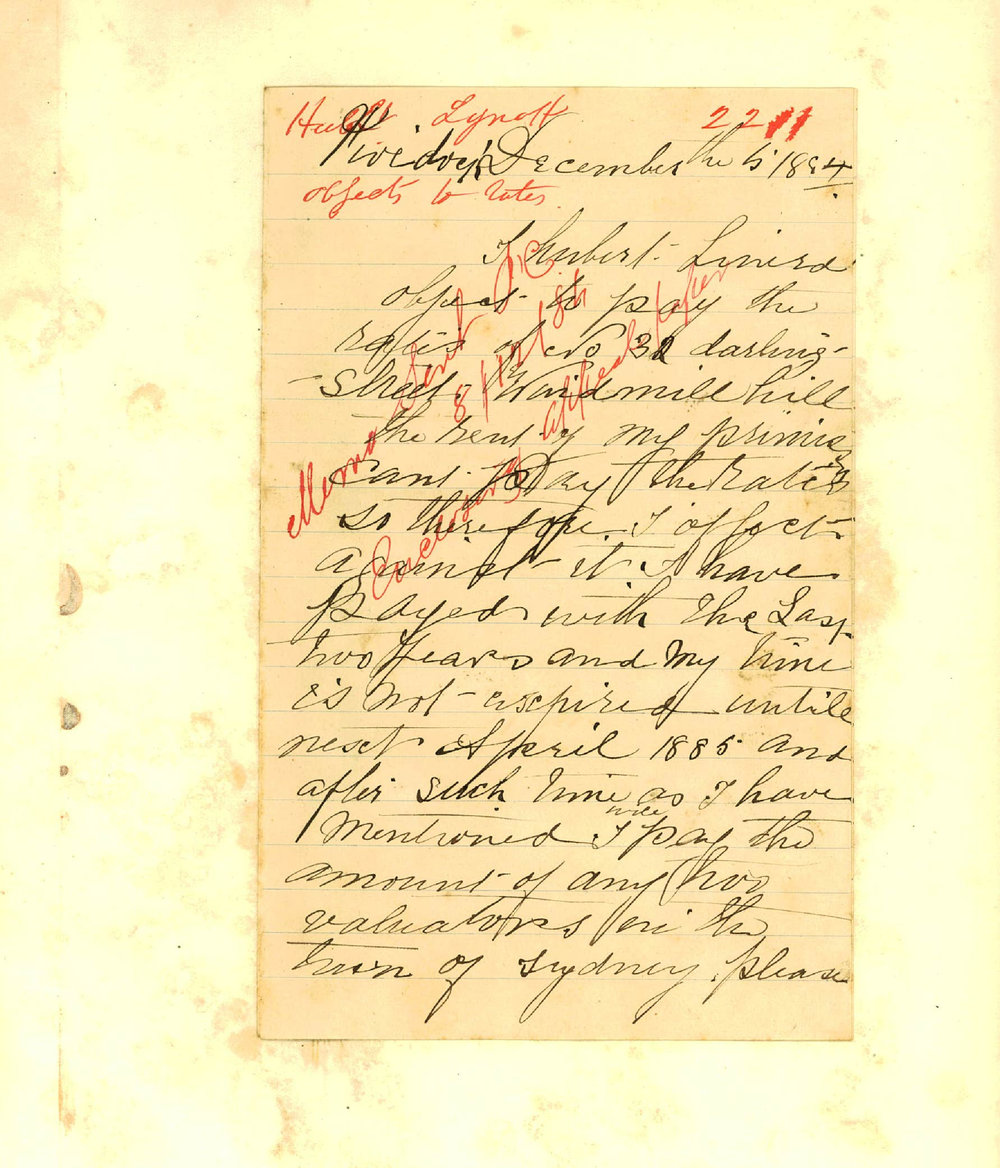 Hubt Lynott 2211
Fivedock December the 5 1884
objects to rates
I hubert Linerd
object to pay the
rates of No 32 darling
Street Windmill hill
the rent of my primises
cant Pay the Rates
so therefore I offect
against it I have
payed with the Last
two years and my time
is not expired untill
next April 1885 and
after such time as I have
mentioned I will pay the
amount of any two
valuators in the
town of Sydney please
Memo sent
8/12/84
Enclosing appeal paper